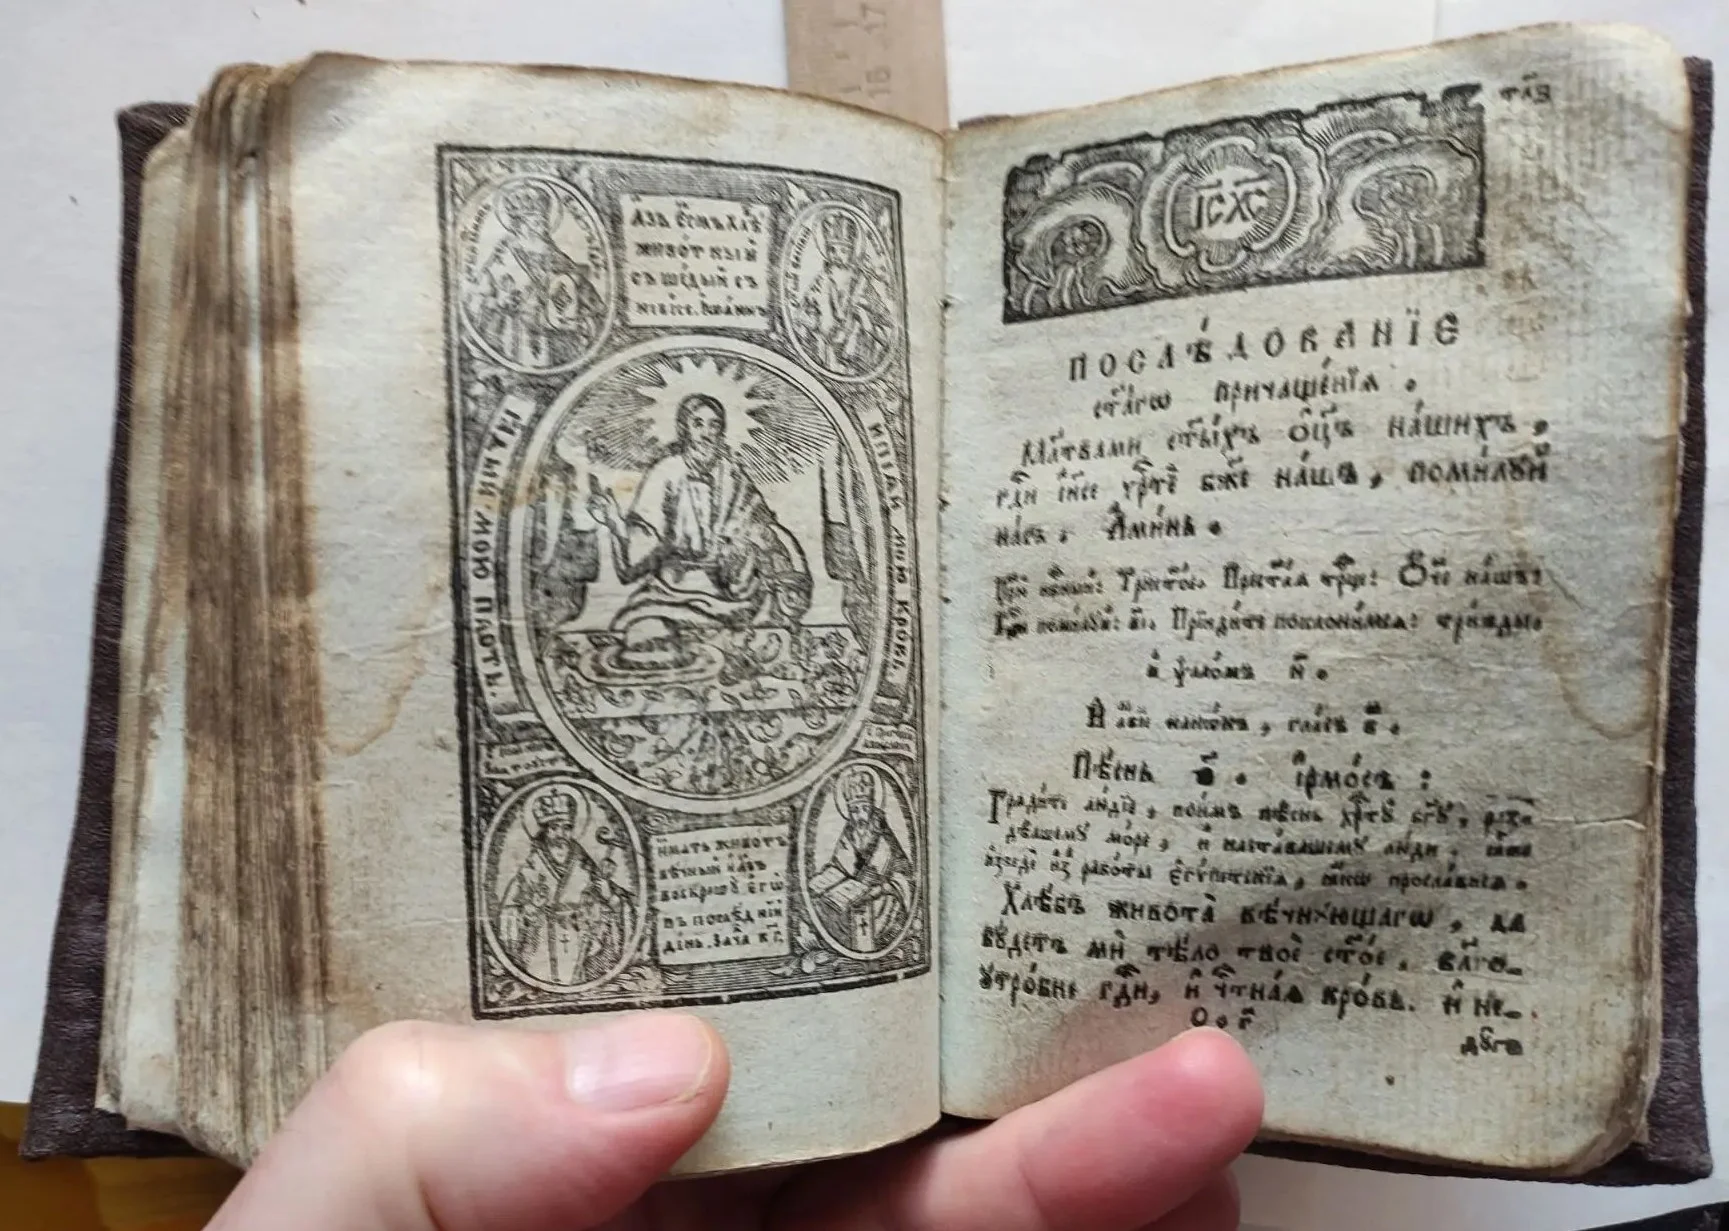 а҆́зъ є҆́смь хлѣ́бъ
живо́тный
съше́дый съ
небесѐ. Іѡа́ннъ
ꙗ҆ды́й. мою̀ пло́ть.
и҆ пїѧ́й мою̀ кро́вь.
и҆́мать живо́тъ
вѣ́чный и҆ а҆́зъ
воскрешꙋ̀ є҆гѡ̀
въ послѣ́днїй
де́нь. Зача̀ к҃г.
17
16
тл҃з
І҃С Х҃С
ПОСЛѢ́ДОВАНЇЕ
ст҃а́гѡ причаще́нїѧ .
Мл҃твами ст҃ы́хъ ѻ҆ц҃ъ на́шихъ ,
гд҇и і҆и҃се хр҇тѐ бж҃е на́шъ , поми́лꙋй
на́съ . А҆ми́нь .
Цр҃ю̀ нбⷭ҇ный: Трист҃о́е. Прест҃а́ѧ трⷪ҇це: Ѻ҆́ч҃е на́шъ:
Гдⷭ҇и поми́лꙋй: в҃і. Прїиди́те поклони́мсѧ: три́жды.
и҆ ѱало́мъ н҃ .
И҆ а҆́бїе кано́нъ , гла́съ в҃ .
Пѣ́снь а҃ . і҆рмо́съ :
Грѧди́те лю́дїе , пои́мъ пѣ́снь хрⷭ҇тꙋ̀ бг҃ꙋ , раз̾-
дѣ́льшемꙋ мо́ре , и҆ наста́вльшемꙋ лю́ди , ꙗ҆̀же
и҆зведѐ и҆з̾ рабо́ты є҆гѵ́петскїѧ , ꙗ҆́кѡ просла́висѧ .
Хлѣ́бъ живота̀ вѣ́чнꙋющагѡ , да
бꙋ́детъ мѝ тѣ́ло твоѐ ст҃о́е , бл҃го-
ꙋтро́бне гдⷭ҇и , и҆ чⷭ҇тна́ѧ кро́вь. и҆ не-
О . г҃
дꙋ́гѡ